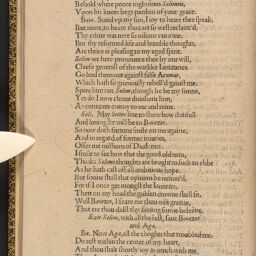 Behold where poore inglorious Selimus,
Vpon his knees begs pardon of your grace.
Baia. Stand vp my son, I ioy to heare thee speak,
But more, to heare thou art so well reclaim'd.
Thy crime was nere so odious vnto me,
But thy reformed life and humble thoughts,
Are thrice as pleasing to my aged spirit.
Selim we here pronounce thee by our will,
Cheefe generall of the warlike Ianizaries.
Go lead them out against false Acomat,
Which hath so grieuously rebell'd gainst me.
Spare him not Selim, though he be my sonne,
Yet do I now cleane disinherit him,
As common enemy to me and mine.
Seli. May Selim liue to shew how dutifull
And louing he will be to Baiazet.
So now doth fortune smile on me againe,
And in regard of former iniuries,
Offer me millions of Diadems:
I smile to see how that the good old man,
Thinks Selims thoughts are brought to such an ebbe
As he hath cast off all ambitious hope.
But soone shall that opinion be remou'd,
For if I once get mongst the Ianizars,
Then on my head the golden crowne shall sit.
Well Baiazet, I feare me thou wilt greeue,
That ere thou didst thy faining sonne beleeue.
Exit Selim, with all the rest, saue Baiazet
and Aga.
Ba. Now Aga, all the thoghts that troubled me,
Do rest within the center of my heart,
And thou shalt shortly ioy as much with me,